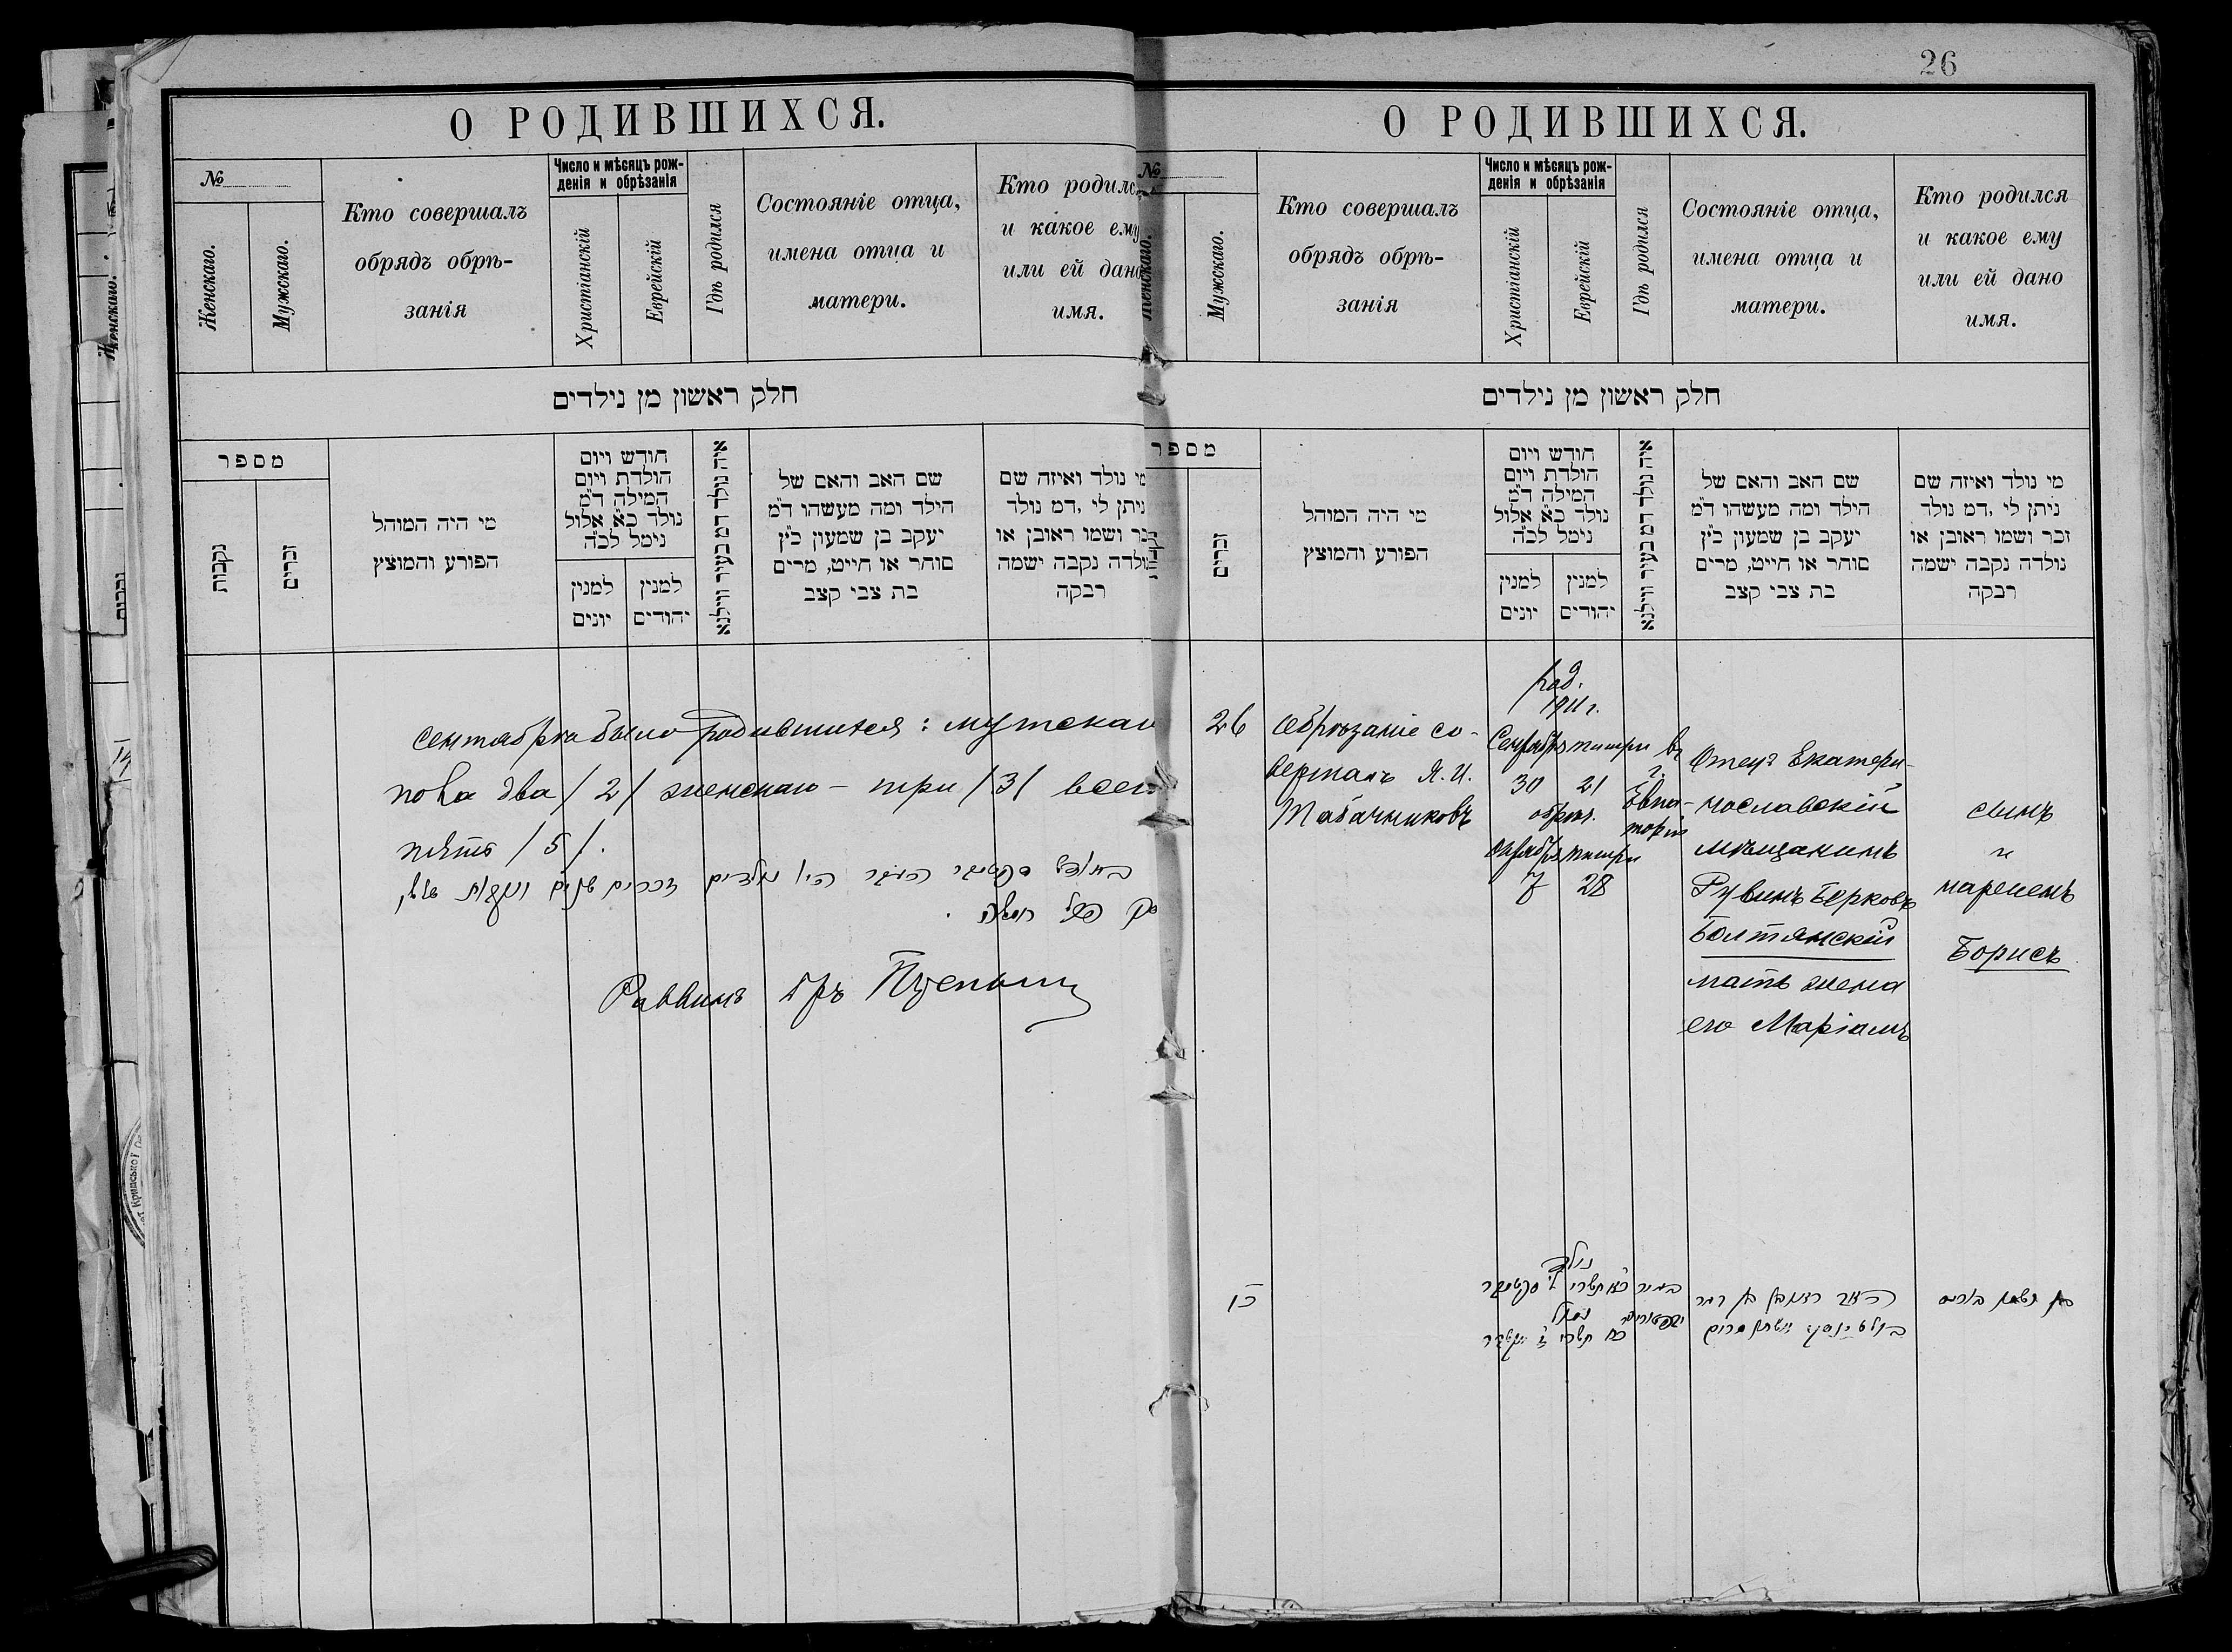 О РОДИВШИХСЯ.
№
Женскаго.
Мужскаго.
Кто совершалъ
обрядъ обрѣ-
занія
Число и мѣсяцъ рож-
денія и обрѣзанія
Христіанскій
Еврейскій
Гдѣ родился
Состояніе отца,
имена отца и
матери.
Кто родилс
и какое ему
или ей дано
имя.
חלק ראשון מן נילדים
מספר
נקבות
זכרים
מי היה המוהל
הפורע והמוצץ
חודש ויום
הולדת ויום
המילה ד"מ
נולד כ"א אלול
נימל לכ"ה
למנין
יונים
למנין
יהודים
איה נולד דמ בעיר ווילנא
שם האב והאם של
הילד ומה מעשהו ד"מ
יעקב בן שמעון כ"ץ
סוחר או חייט, מרים
בת צבי קצב
מי נולד ואיזה שם
ניתן לי ,דמ נולד
זכר ושמו ראובן או
נולדה נקבה ישמה
רבקה
сентября было родившихся: мужскаго
пола два /2/ женскаго - три /3/ всего
пять /5/.
נולדים זכרים שנים
Раввинъ
26
О РОДИВШИХСЯ.
№
Женскаго.
Мужскаго.
Кто совершалъ
обрядъ обрѣ-
занія
Число и мѣсяцъ рож-
денія и обрѣзанія
Христіанскій
Еврейскій
Гдѣ родился
Состояніе отца,
имена отца и
матери.
Кто родился
и какое ему
или ей дано
имя.
חלק ראשון מן נילדים
מספר
זכרים
מי היה המוהל
הפורע והמוצץ
חודש ויום
הולדת ויום
המילה ד"מ
נולד כ"א אלול
נימל לכ"ה
למנין
יונים
למנין
יהודים
איה נולד דמ בעיר ווילנא
שם האב והאם של
הילד ומה מעשהו ד"מ
יעקב בן שמעון כ"ץ
סוחר או חייט, מרים
בת צבי קצב
מי נולד ואיזה שם
ניתן לי ,דמ נולד
זכר ושמו ראובן או
נולדה נקבה ישמה
רבקה
26
Обрѣзаніе со-
вершалъ Я. И.
Табачниковъ
род.
1911 г.
Сентября тишри
30 21
обрѣз.
октября тишри
7 28
въ
г.
Евпа-
торіи
Отецъ Екатери-
нославскій
мѣщанинъ
Рувинъ Берковъ
Болтянскій
мать жена
его Маріамъ
сынъ
и
нареченъ
Борисъ
כו
נולד
נמול